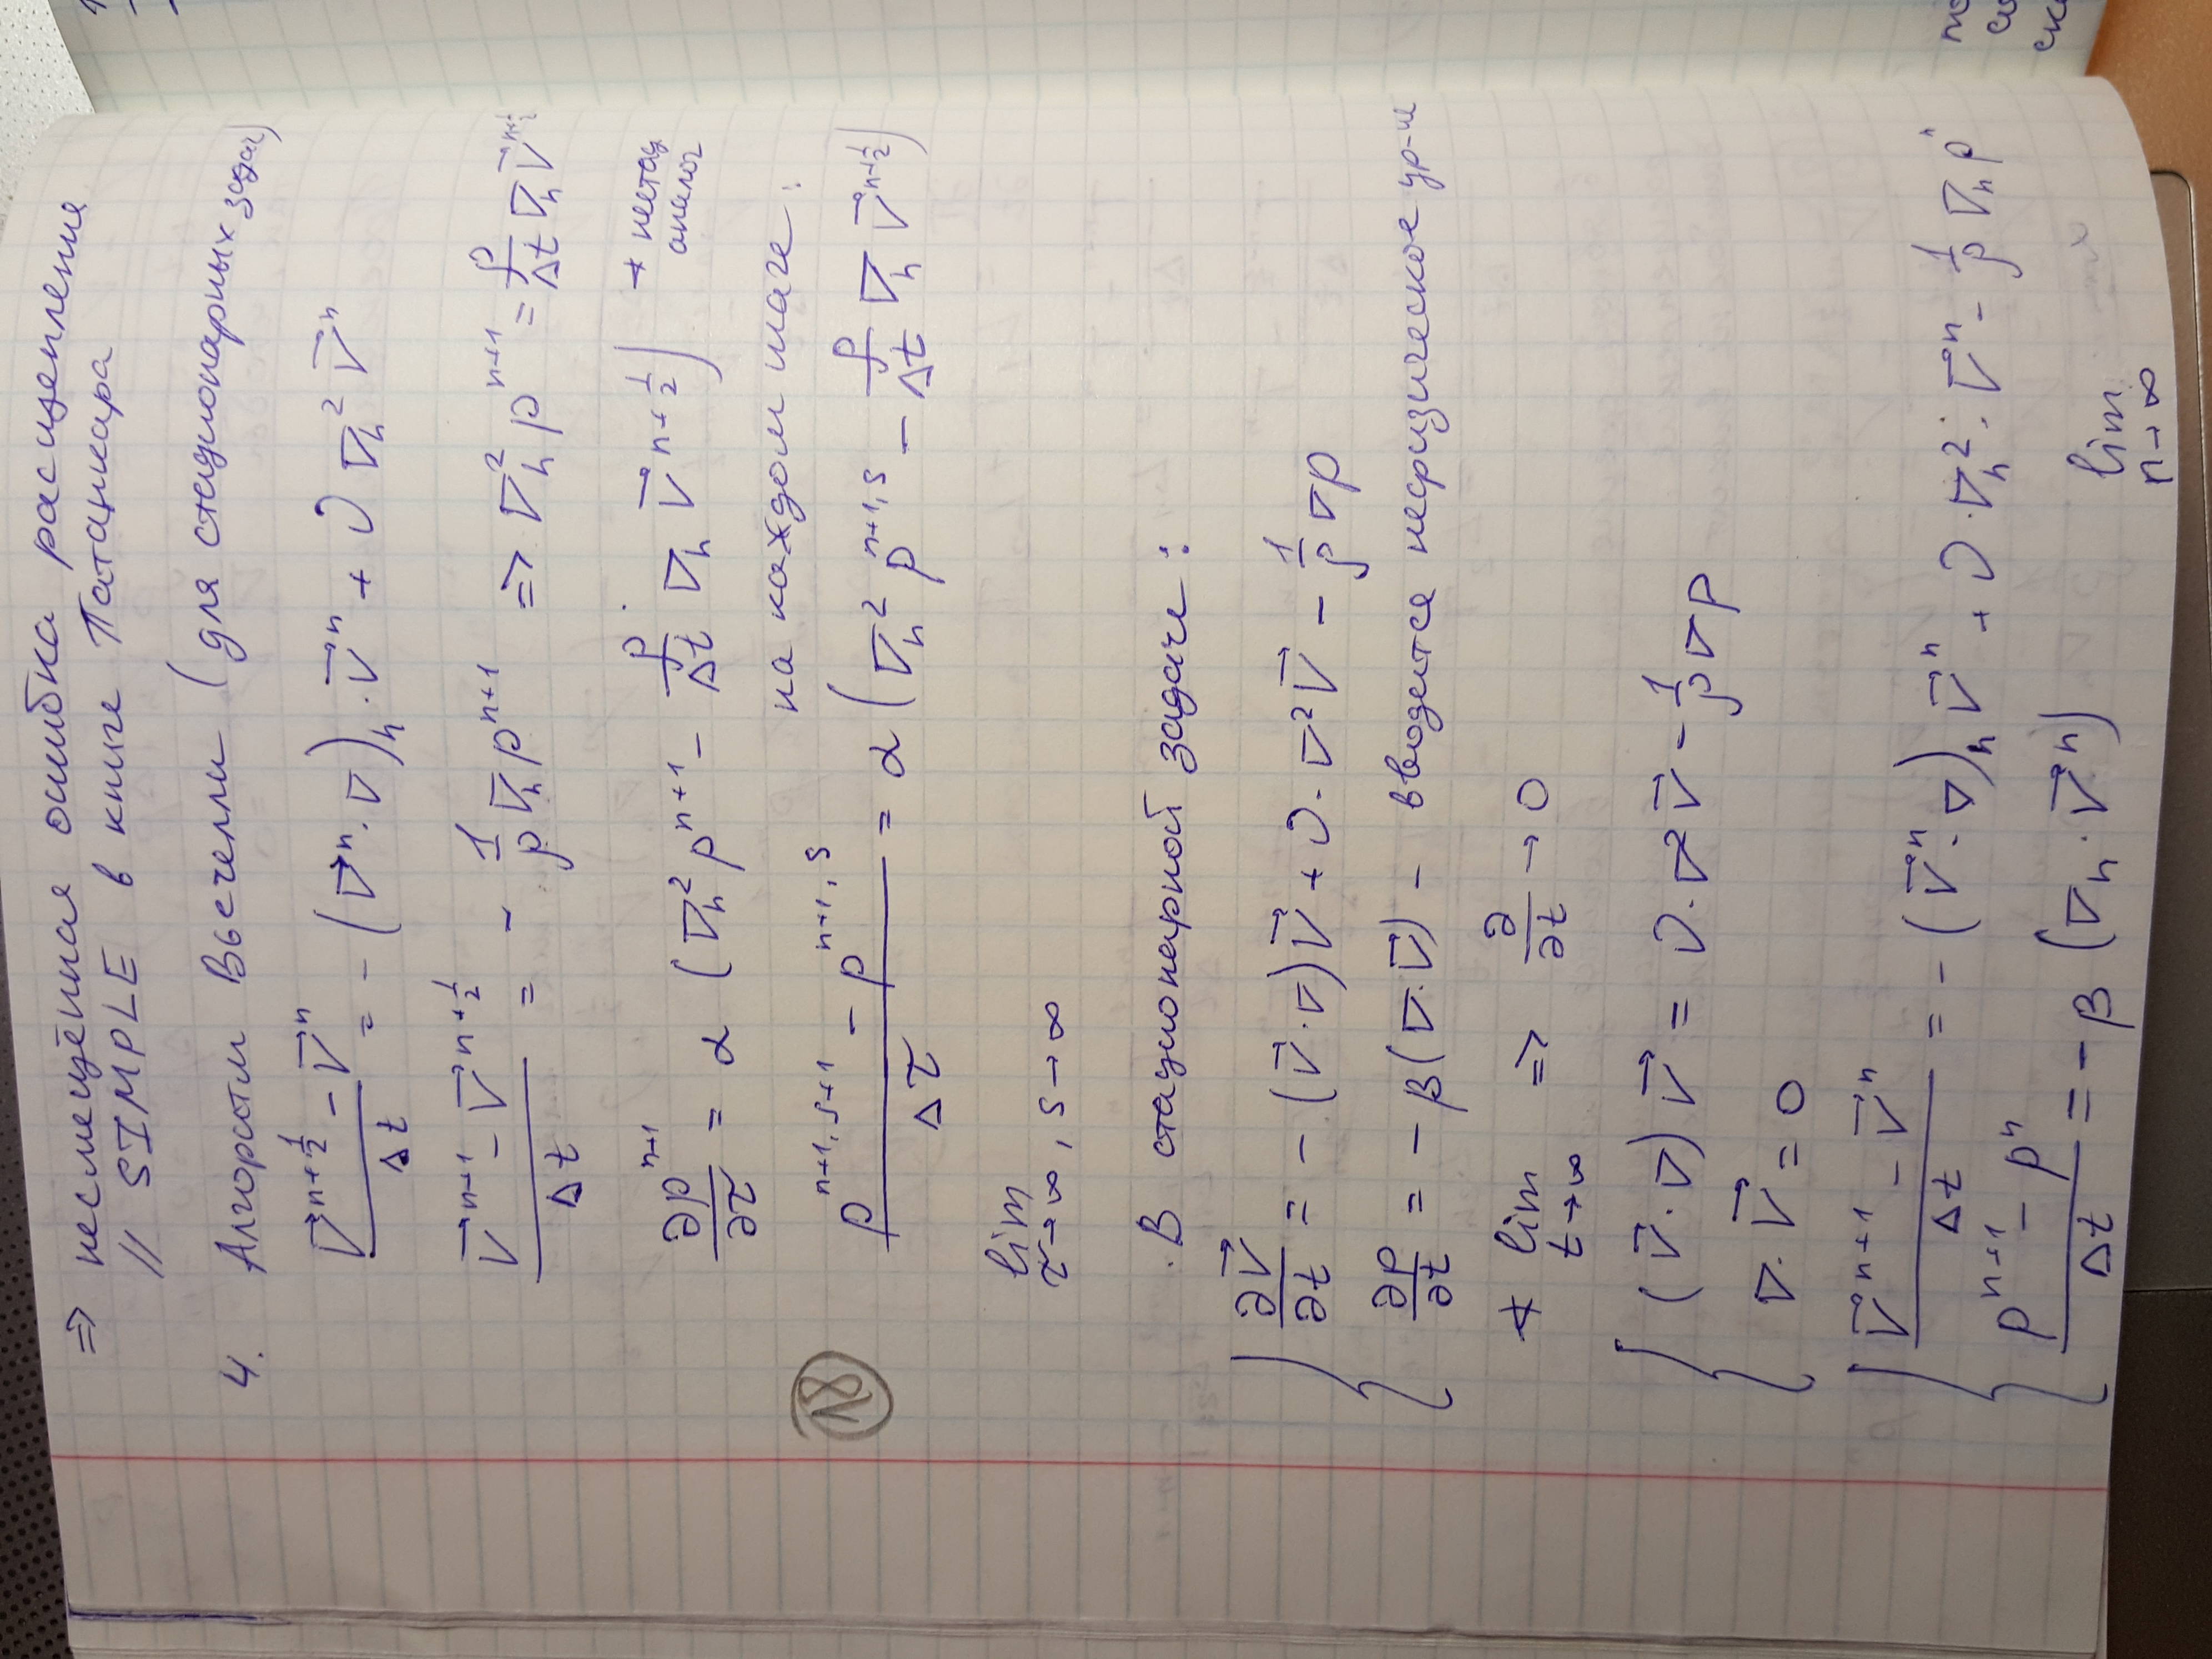 ⇒ несмещённая ошибка расщепления
// SIMPLE в книге Патанкара
4. Алгоритм Вьечелли (для стационарных задач)
(V⃗^{n+1/2} − V⃗^n)/Δt = −(V⃗^n · ∇)_h · V⃗^n + ν ∇_h^2 V⃗^n
(V⃗^{n+1} − V⃗^{n+1/2})/Δt = −(1/ρ) ∇_h p^{n+1} ⇒ ∇_h^2 p^{n+1} = (ρ/Δt) ∇_h V⃗^{n+1/2}
∂p^{n+1}/∂τ = α (∇_h^2 p^{n+1} − (ρ/Δt) ∇_h V⃗^{n+1/2}) ∢ нестац
аналог
на каждом шаге:
18
(p^{n+1,s+1} − p^{n+1,s})/Δτ = α (∇_h^2 p^{n+1,s} − (ρ/Δt) ∇_h V⃗^{n+1/2})
lim
τ→∞, s→∞
. В стационарной задаче:
∂V⃗/∂t = −(V⃗·∇)V⃗ + ν·∇^2 V⃗ − (1/ρ) ∇p
∂p/∂t = −β(∇·V⃗) − вводится нефизическое ур-ие
∢ lim ⇒ ∂/∂t → 0
t→∞
(V⃗·∇)V⃗ = ν·∇^2 V⃗ − (1/ρ) ∇p
∇·V⃗ = 0
(V⃗^{n+1} − V⃗^n)/Δt = −(V⃗^n·∇)_h V⃗^n + ν·∇_h^2·V⃗^n − (1/ρ) ∇_h p^n
(p^{n+1} − p^n)/Δt = −β (∇_h · V⃗^n)
lim
n→∞